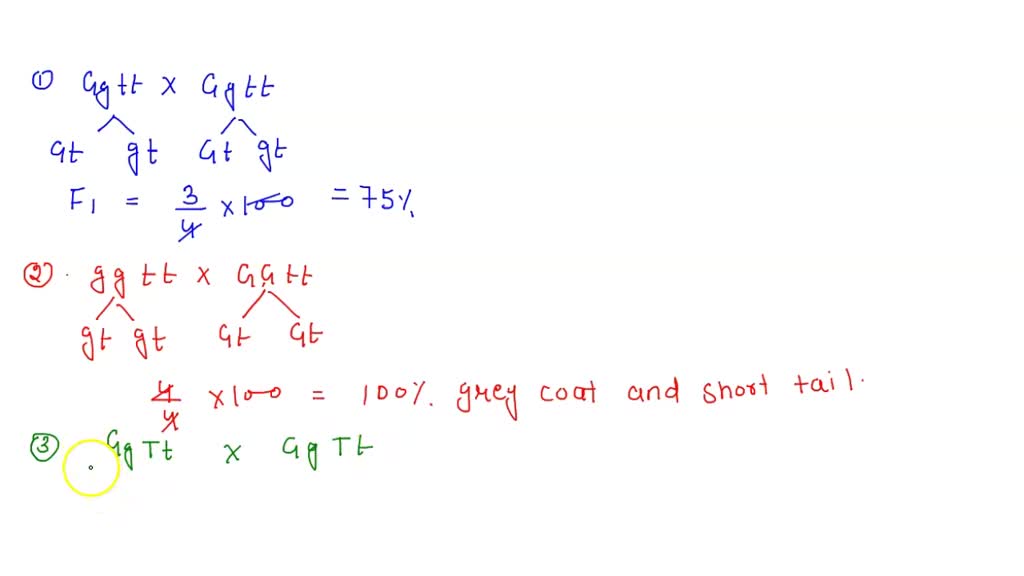 ① Ggtt x Ggtt
Gt gt Gt gt
F1 = 3/4 x100 = 75%
② . gg tt x GG tt
gt gt Gt Gt
4/4 x100 = 100%. grey coat and short tail.
③ Gg Tt x Gg Tt